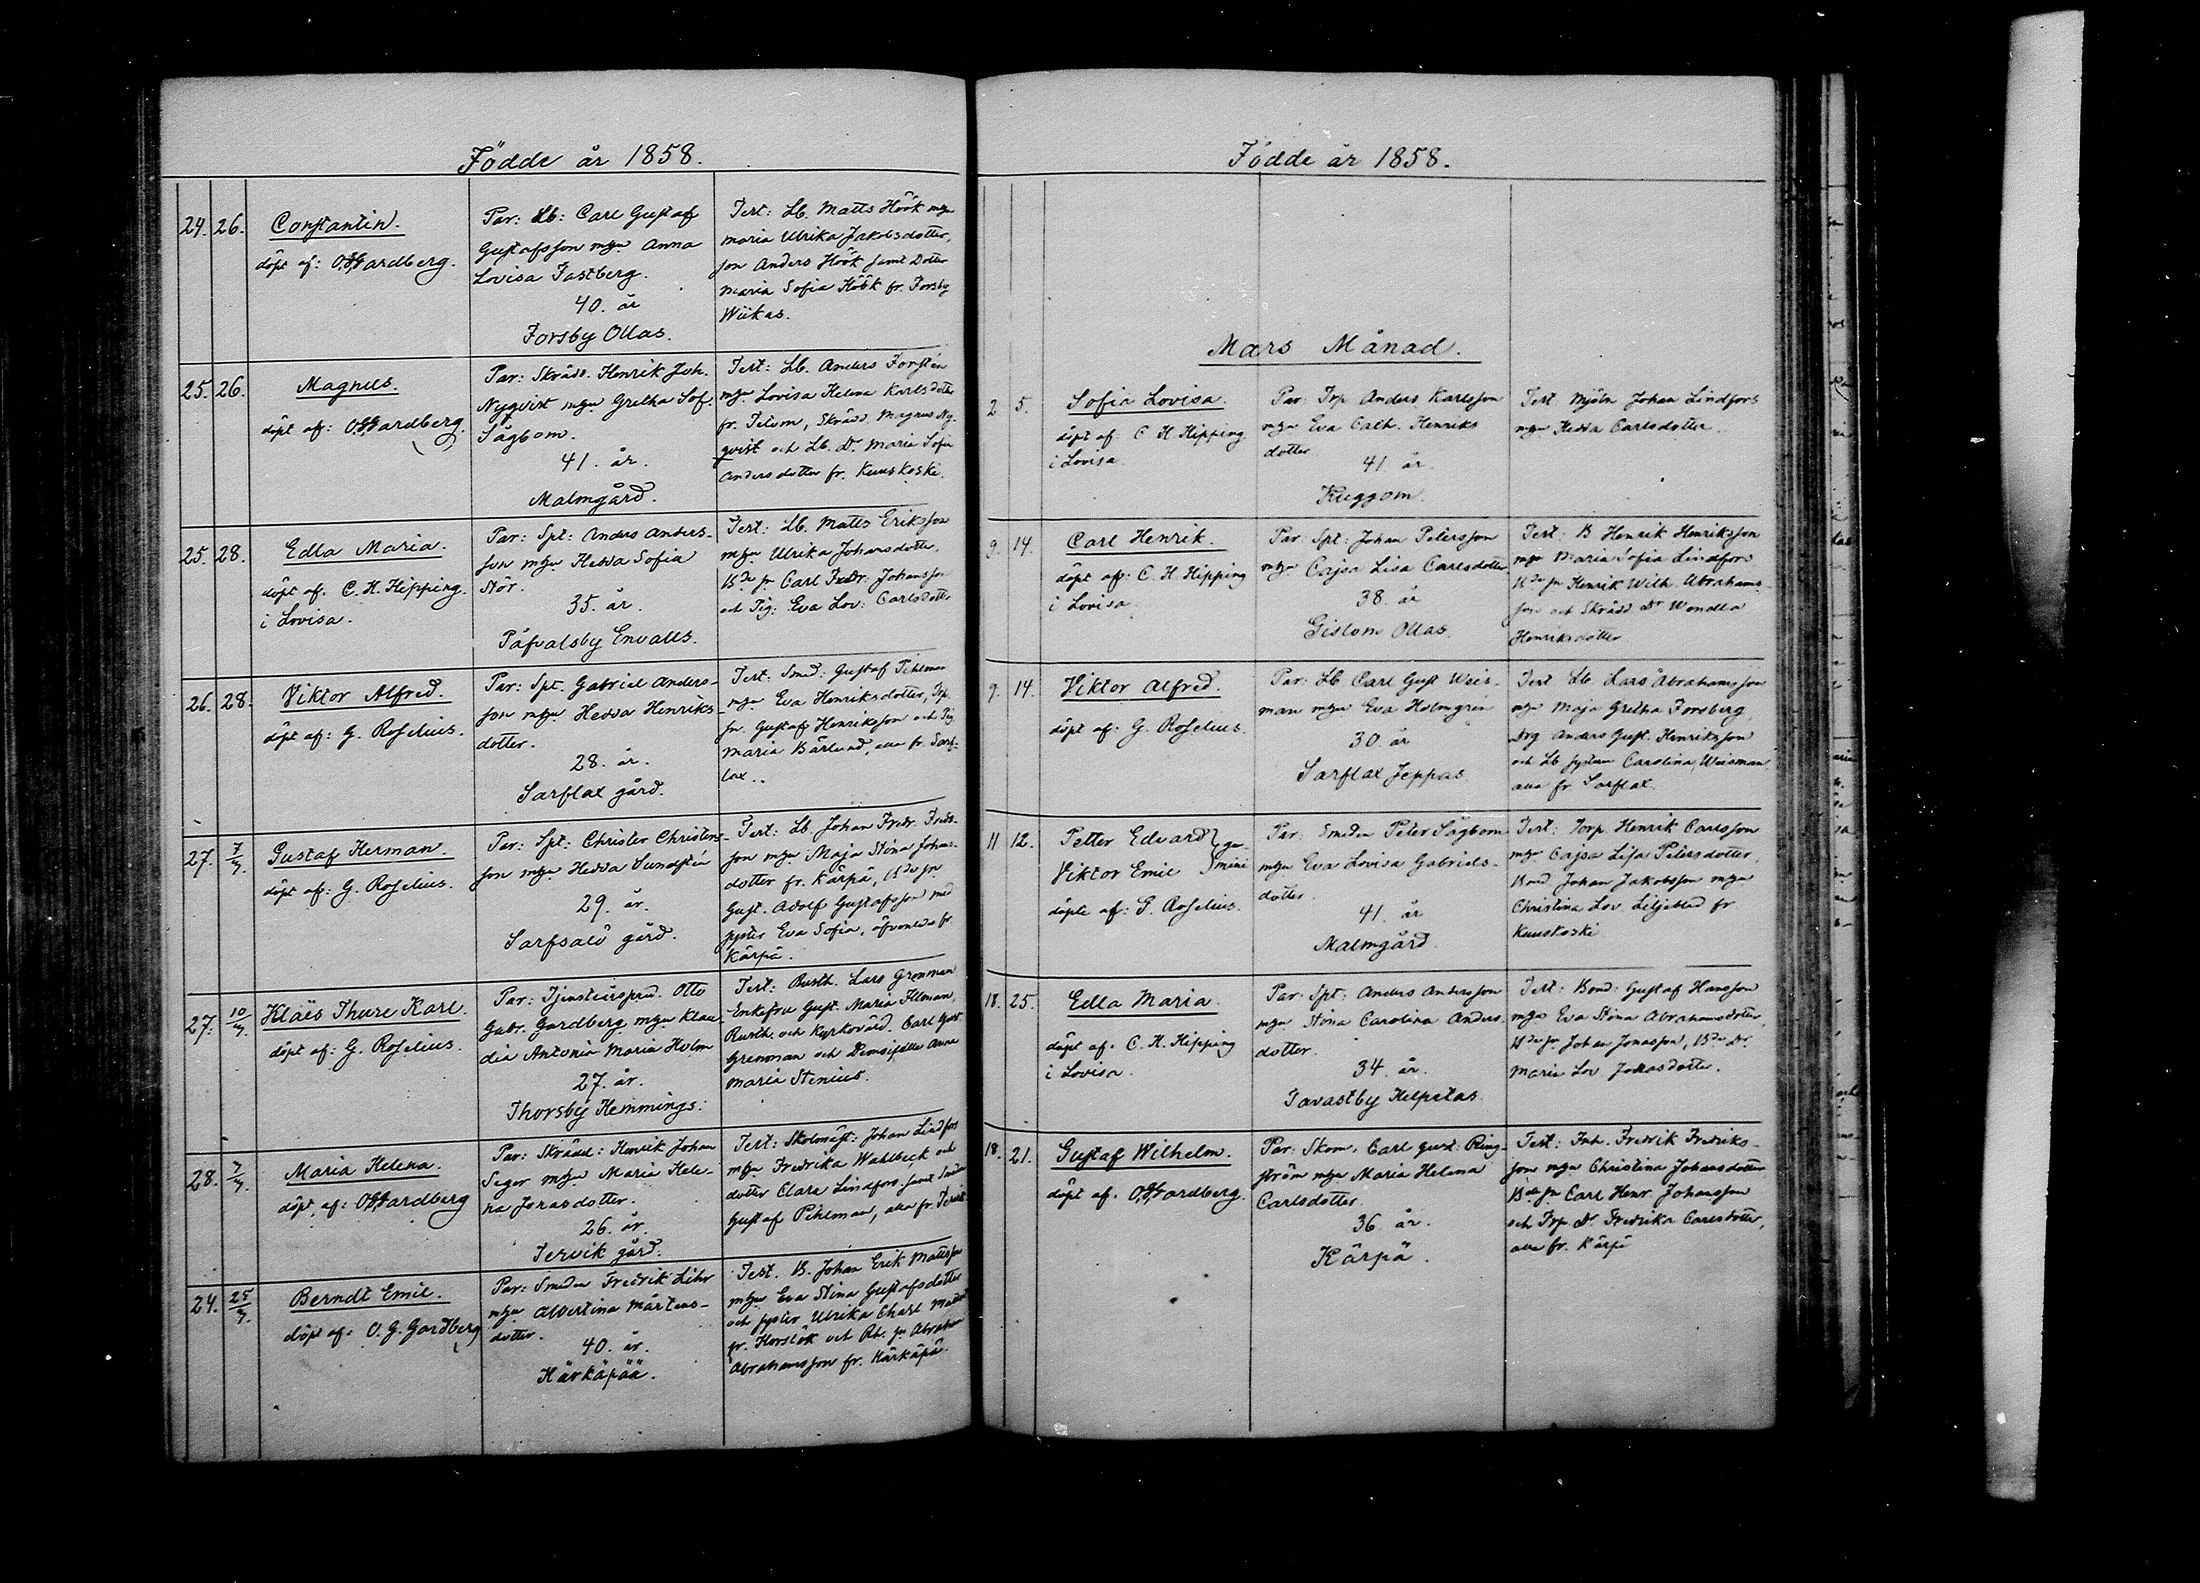 Födde år 1858.
24. 26. Constantin.
döpt af: O.G. Gardberg.
Par: Lb: Carl Gustaf
Gustafsson m/gn Anna
Lovisa Fastberg.
40. år
Forsby Ollas.
Test: Lb. Matts Höök m/gn
Maria Ulrika Jakobsdotter,
son Anders Höök samt Dotter
Maria Sofia Höök fr. Forsby
Wiikas.
25. 26. Magnus.
döpt af: O.G. Gardberg.
Par: Skrädd. Henrik Joh.
Nyqvist m/gn Gretha Sof.
Sågbom.
41. år.
Malmgård.
Test: Lb. Anders Forstén
m/gn Lovisa Helena Karlsdotter
fr. Isnäs, Skrädd. Magnus Ny-
qvist och Lb. Dr. Maria Sofia
Andersdotter fr. Kuuskoski.
25. 28. Edla Maria.
döpt af. C. H. Hipping.
i Lovisa.
Par: Spt: Anders Anders-
son m/gn Hedda Sofia
Stör.
35. år.
Påfvalsby Envalls.
Test: Lb. Matts Eriksson
m/gn Ulrika Johansdotter,
Bde sn Carl Fredr. Johansson
och Pig: Eva Lov: Carlsdotter
26. 28. Viktor Alfred.
döpt af: G. Roselius.
Par: Spt. Gabriel Anders-
son m/gn Hedda Henriks-
dotter.
28. år.
Sarflax gård.
Test: Smed: Gustaf Pihlman
m/gn Eva Henriksdotter, Trp.
sn. Gustaf Henriksson och Pig
Maria Bärlund, alla fr. Sarf-
lax..
27. 7/3. Gustaf Herman.
döpt af: G. Roselius.
Par: Spt: Christer Christers-
son m/gn Hedda Sundstén
29. år.
Sarfsalö gård.
Test: Lb. Johan Fredr. Freds-
son m/gn Maja Stina Johans-
dotter fr. Kärpä, Bde sn
Gust. Adolf Gustafsson med
syster Eva Sofia, äfvenledes fr
Kärpä.
27. 10/3. Klaës Thure Karl.
döpt af: G. Roselius.
Par: Tjensteinspred. Otto
Gabr. Gardberg m/gn Klau-
dia Antonia Maria Holm
27. år.
Thorsby Hemmings.
Test: Rusth. Lars Grenman
Enkefru Gust. Maria Illman,
Rusth. och Kyrkovärd. Carl Gust
Grenman och Demoiselle Anna
Maria Stenius.
28. 7/3. Maria Helena.
döpt af: O.G. Gardberg
Par: Skrädd: Henrik Johan
Seger m/gn Maria Hele-
na Jonasdotter.
26. år.
Tervik gård.
Test: Skolmäst: Johan Lindfors
m/gn Fredrika Wahlbeck och
dotter Clara Lindfors samt Smeden
Gustaf Pihlman, alla fr. Tervik
24. 25/3. Berndt Emil.
döpt af: O. G. Gardberg
Par: Smeden Fredrik Lihr
m/gn Albertina Mårtens-
dotter.
40. år.
Härkäpää.
Test. B. Johan Erik Mattsson
m/gn Eva Stina Gustafsdotter
och syster Ulrika Charl
fr. Horslök och Rh. sn Abraham
Abrahamsson fr. Härkäpä.
Födde år 1858.
Mars Månad.
2 5. Sofia Lovisa.
döpt af C H. Hipping
i Lovisa
Par: Trp Anders Karlsson
m/gn Eva Cath. Henriks
dotter
41 år.
Kuggom.
Test Mjöln Johan Lindfors
m/gn Hedda Carlsdotter.
9. 14. Carl Henrik.
döpt af: C. H Hipping
i Lovisa
Par: Spt: Johan Petersson
m/gn Cajsa Lisa Carlsdotter
38. år
Gislom Ollas.
Test: B Henrik Henriksson
m/gn Maria Sofia Lindfors
Bde sn Henrik Wilh. Abrahams-
son och Skrädd Dr Wendla
Henriksdotter
9. 14. Viktor Alfred.
döpt af: G. Roselius.
Par: Lb Carl Gust Weis-
man m/gn Eva Holmgrén
30. år
Sarflax Jeppas
Test Lb. Lars Abrahamsson
m/gn Maja Gretha Forsberg,
Drg Anders Gust. Henriksson
och Lb systern Carolina Weisman
alla fr Sarflax.
11 12. Petter Edvard } ge-
Viktor Emil } mini
döpte af: G. Roselius.
Par: Smeden Peter Sågbom
m/gn Eva Lovisa Gabriels-
dotter.
41. år
Malmgård.
Test: Torp. Henrik Carlsson
m/gn Cajsa Lisa Petersdotter,
Bond Johan Jakobsson m/gn
Christina Lov. Liljeblad fr
Kuuskoski
18. 25. Edla Maria.
döpt af. C. H. Hipping
i Lovisa.
Par: Spt: Anders Andersson
m/gn Stina Carolina Anders-
dotter.
34. år.
Tavastby Helpetas
Test: Bond: Gustaf Hansson
m/gn Eva Stina Abrahamsdotter,
Bde sn Johan Jonasson, Bde Dr.
Maria Lov. Jonasdotter.
18. 21. Gustaf Wilhelm.
döpt af. O.G. Gardberg.
Par: Skom. Carl Gust: Ring-
ström m/gn Maria Helena
Carlsdotter
36. år.
Kärpä.
Test: Inh. Fredrik Fredriks-
son m/gn Christina Johansdotter
Bde sn Carl Henr. Johansson
och Trp Dr Fredrika Carlsdotter,
alla fr. Kärpä